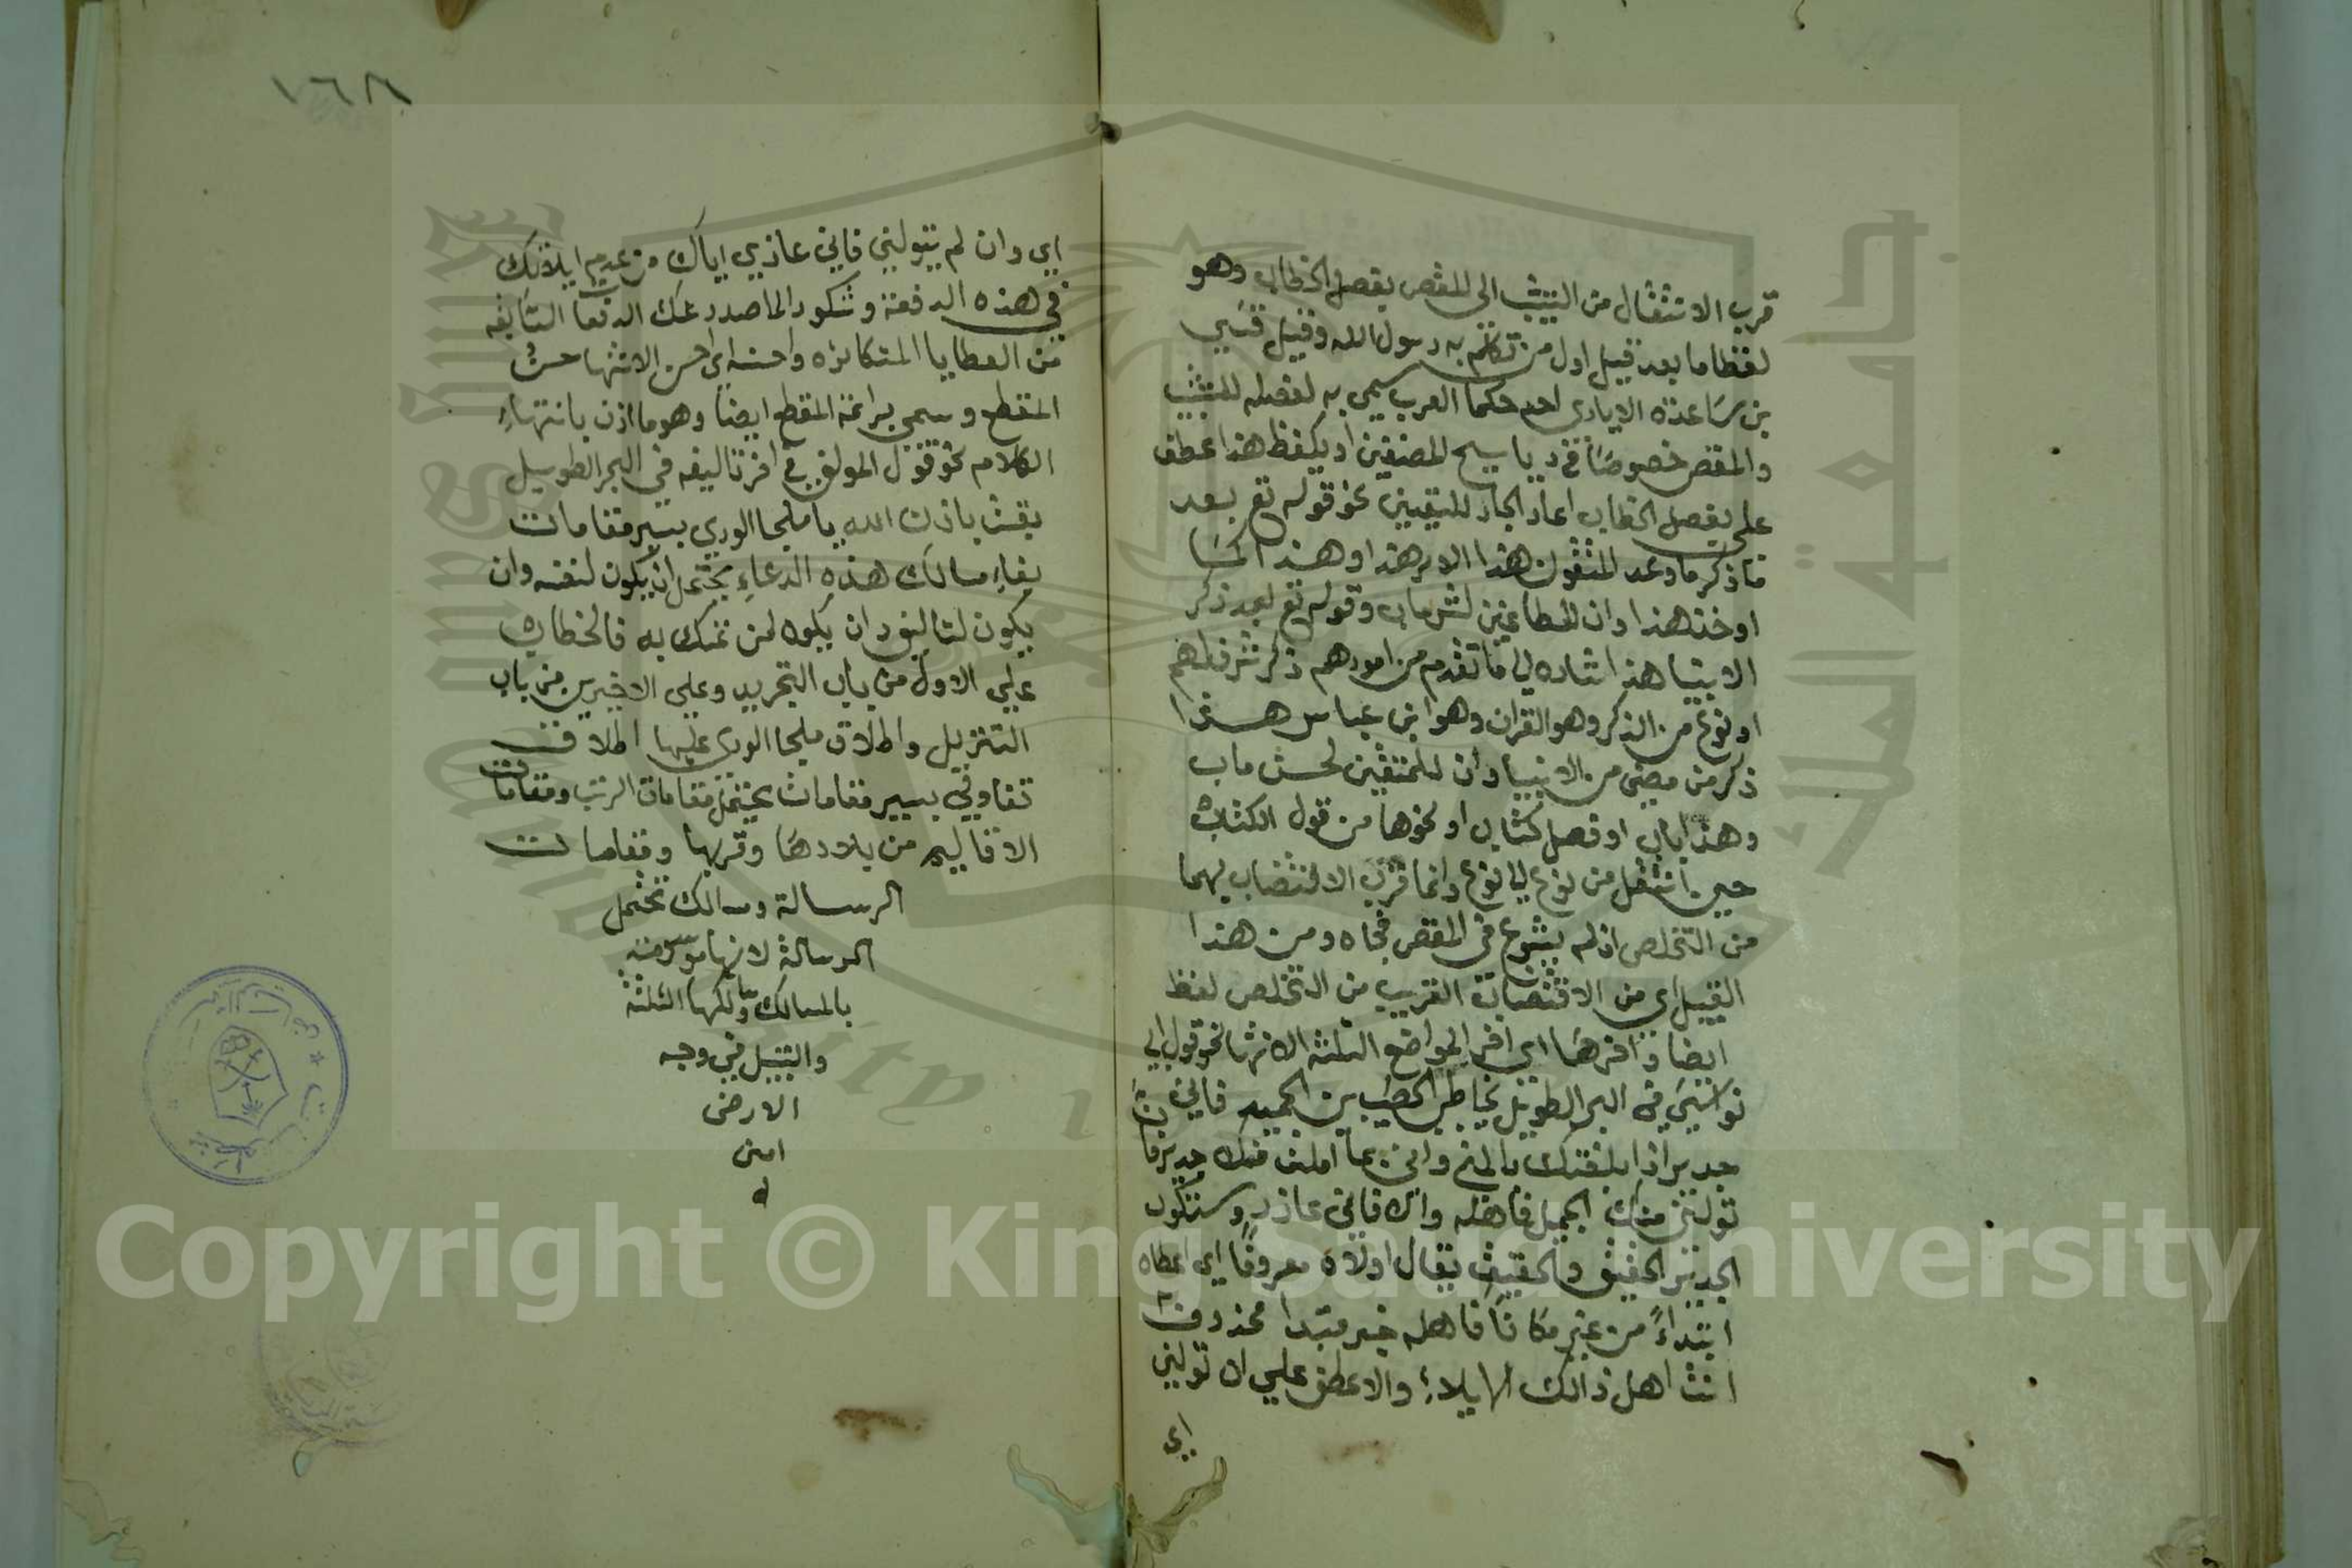 قرب الانتقال من التشبيب الى المقص بفصل الخطاب وهو
لفظ اما بعد قيل اول من تكلم به رسول الله وقيل قس
بن ساعدة الايادى احد حكما العرب سمى به لفصله التشبيب
والمقص خصوصا في ديابيج المصنفين او بكفظ هذا عطف
على بفصل الخطاب اعاد الجار للتبيين نحو قوله تع بعد
ما ذكر ما وعد المتقون هذا الامر هذا او هذا كما
او خذ هذا وان للطاغين لشر ماب وقوله تع بعد ذكر
الانبيا هذا اشاره الى ما تقدم من امورهم ذكر شرف لهم
او نوع من الذكر وهو القران وهو ابن عباس هذا
ذكر من مضى من الانبيا وان للمتقين لحسن ماب
وهذا باب او فصل كتاب او نحوها من قول الكتاب
حين انتقل من نوع الى نوع وانما قرب الاقتضاب بهما
من التخلص اذ لم يشرع في المقص فجاه ومن هذا
القبيل اي من الاقتضاب القريب من التخلص لفظ
ايضا واخرها اي اخر المواضع الثلثة الانتها نحو قول ابي
نواس في البحر الطويل يخاطب الخصيب بن الحميد فاني
جدير اذا بلغتك بالمنى وانى بما املت منك جدير فان
تولني منك الجميل فاهله والا فاني عاذر وشكور
الجدير الحقيق والحقيق يقال اولاه معروفا اي اعطاه
ابتداءً من غير مكافاة فاهله خبر مبتدا محذوف
انت اهل ذالك الايلاء والا عطف على ان تولني
اي
١٦٨
اي وان لم يتوليني فاني عاذري اياك من عدم ايلائك
في هذه الدفعة وشكور الما صدر عنك الدفعا السالفه
من العطايا المتكاثره واحسنه اي احسن الانتها حسن
المقطع وسمى براعة المقطع ايضا وهو ما اذن بانتهاء
الكلام نحو قول المولف في اخر تاليفه في البحر الطويل
بقيت باذن الله يا ملجا الورى بسير مقامات
بقاء مسالك هذه الدعاء يحتمل ان يكون لنفسه وان
يكون لتاليفه وان يكون لمن تمسك به فالخطاب
على الاول من باب التجريد وعلى الاخيرين من باب
التنزيل واطلاق ملجا الورى عليها اطلاق
تفاولي بسير مقامات يحتمل مقامات الرتب ومقامات
الاقاليم من بلادها وقربها ومقامات
الرسالة ومسالك تحتمل
الرسالة لانها موسومة
بالمسالك ومسالكها الثلثة
والسبل في وجه
الارض
امين
م